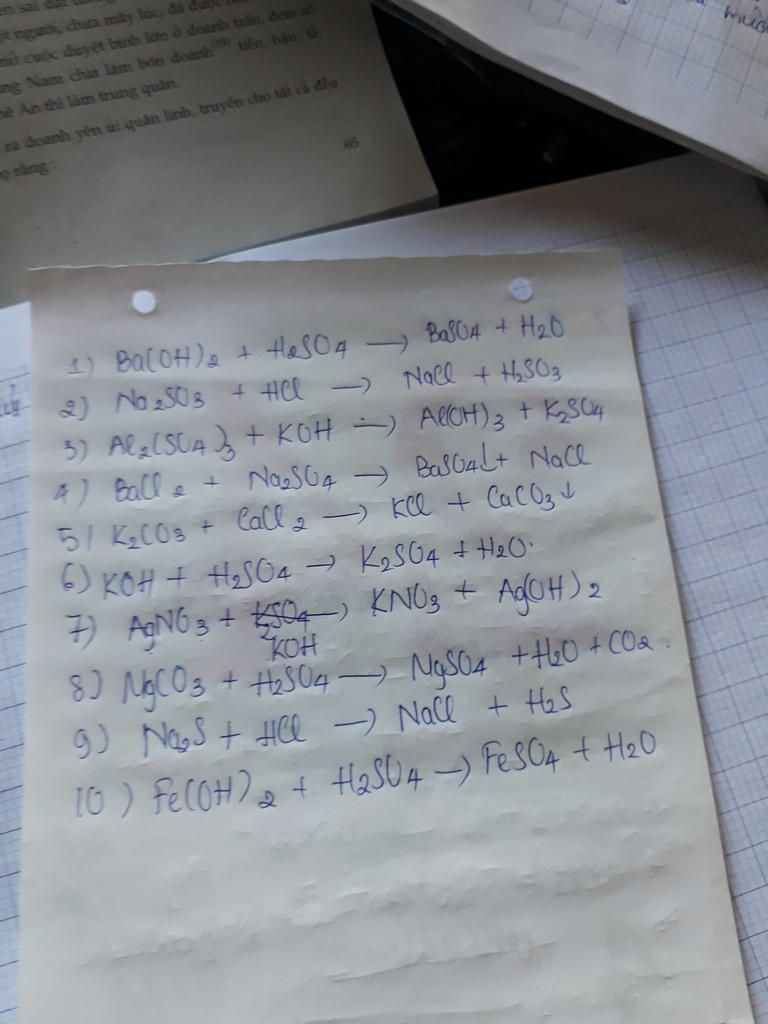 ệt người, chưa mấy lúc, đã được
mở cuộc duyệt binh lớn ở doanh trấn, đem số
ng Nam chia làm bốn doanh⁽¹⁹⁾ tiền, hậu, tả,
hệ An thì làm trung quân.
ra doanh yên ủi quân lính, truyền cho tất cả đều
ọ rằng :
65
1) Ba(OH)₂ + H₂SO₄ → BaSO₄ + H₂O
2) Na₂SO₃ + HCl → NaCl + H₂SO₃
3) Al₂(SO₄)₃ + KOH → Al(OH)₃ + K₂SO₄
4) BaCl₂ + Na₂SO₄ → BaSO₄↓ + NaCl
5) K₂CO₃ + CaCl₂ → KCl + CaCO₃↓
6) KOH + H₂SO₄ → K₂SO₄ + H₂O.
7) AgNO₃ + K₂SO₄ → KNO₃ + Ag(OH)₂
KOH
8) MgCO₃ + H₂SO₄ → MgSO₄ + H₂O + CO₂.
9) Na₂S + HCl → NaCl + H₂S
10) Fe(OH)₂ + H₂SO₄ → FeSO₄ + H₂O